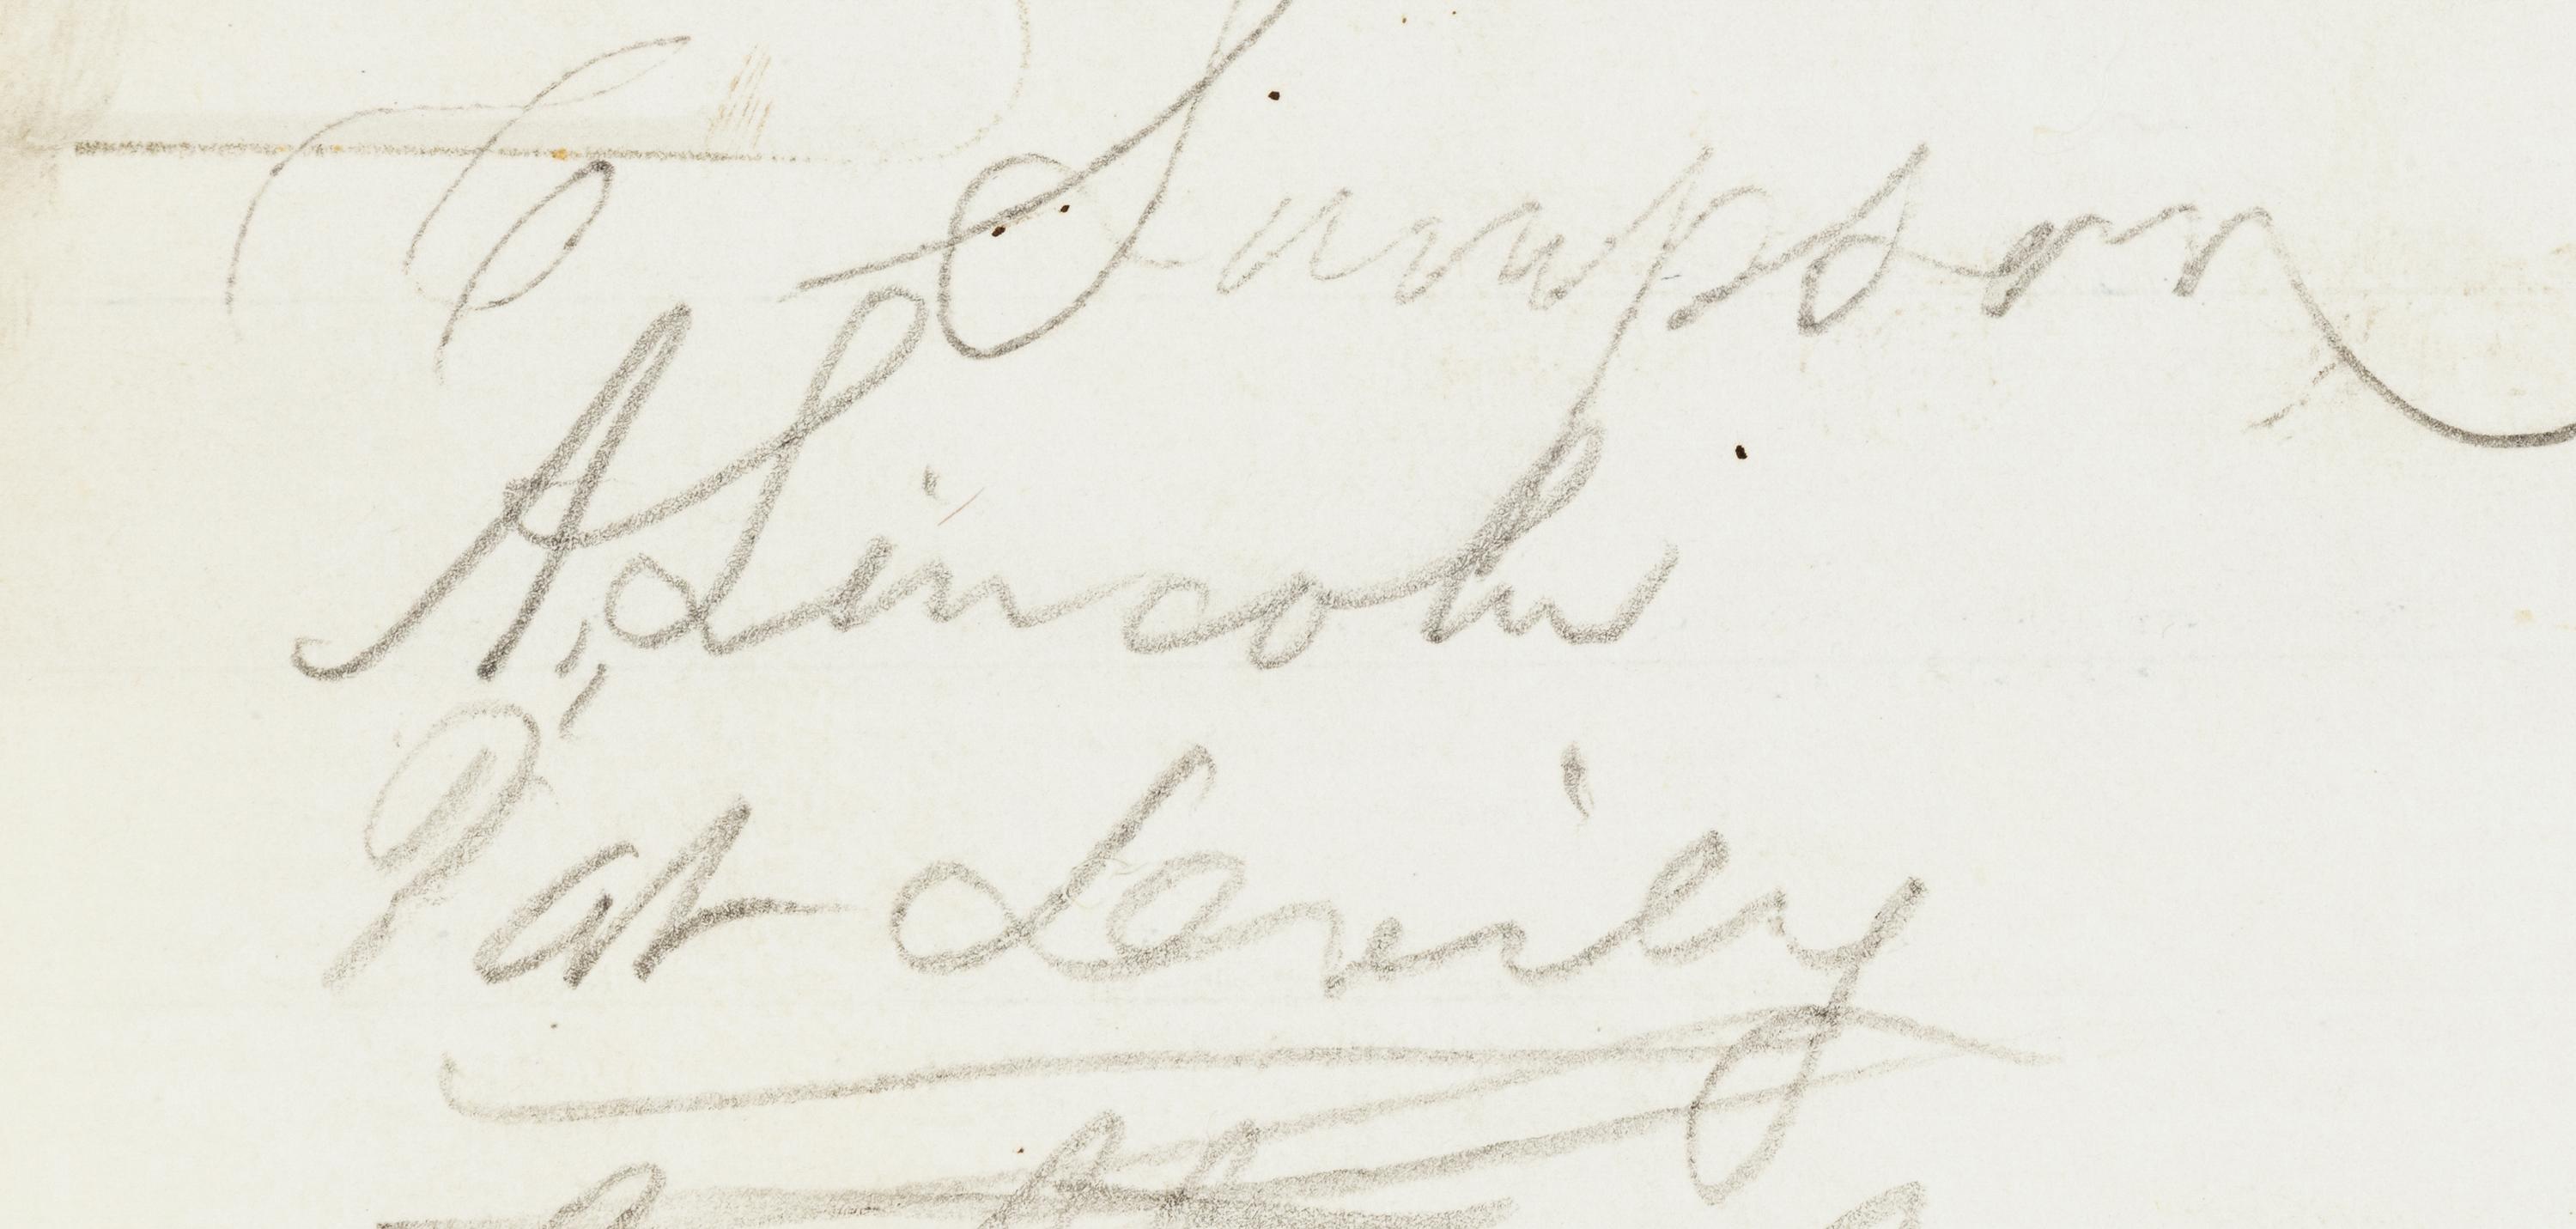 C Simpson
A. Lincoln
Pat Lovily